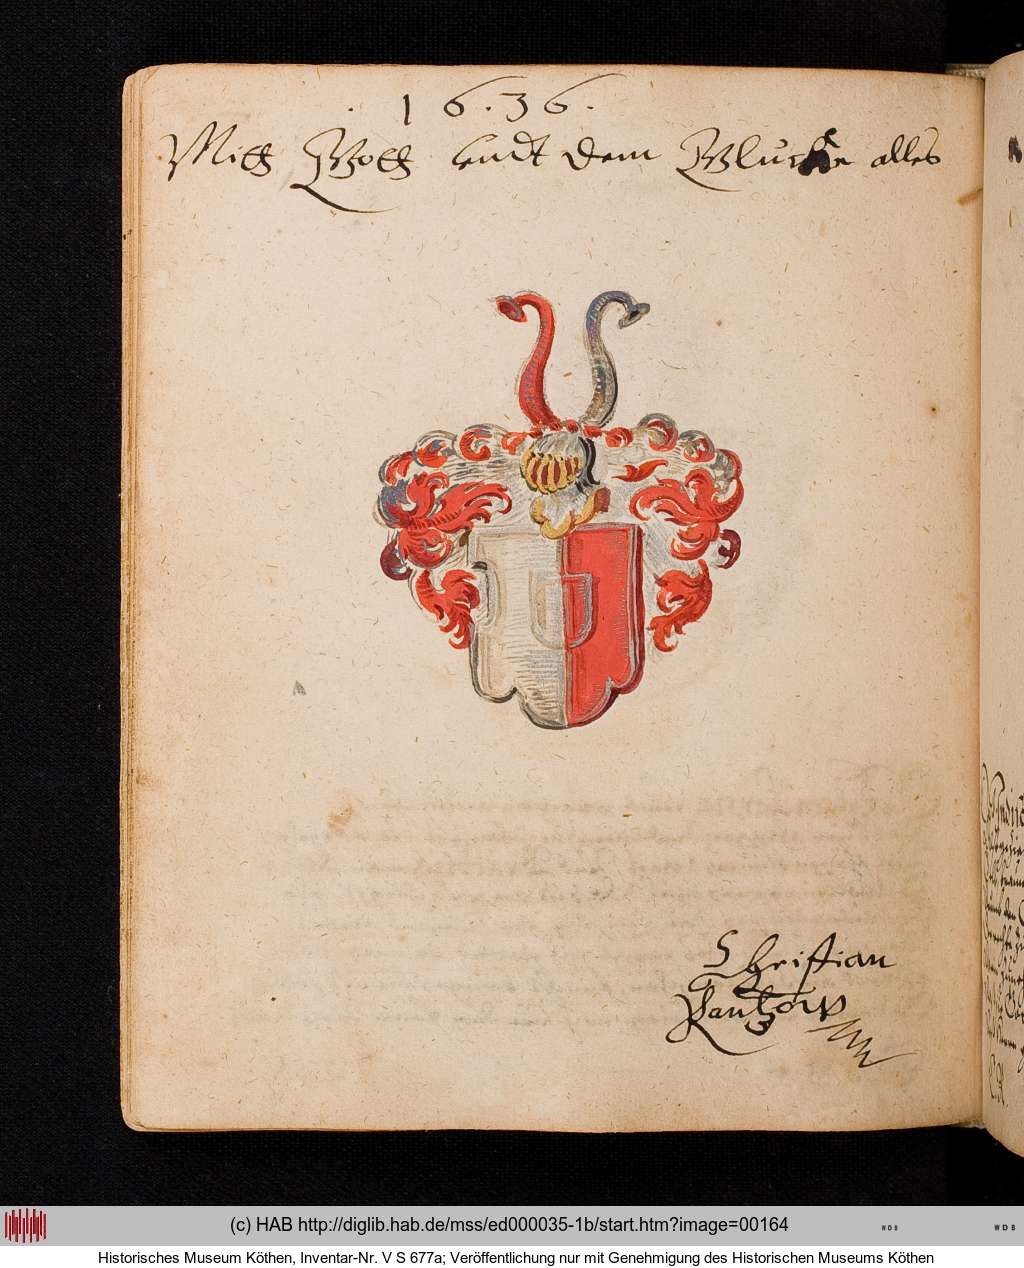 1 6 . 3 6 .
Mitt Gott undt dem Glücke alles
Christian
Rantzow
(c) HAB http://diglib.hab.de/mss/ed000035-1b/start.htm?image=00164
WDB
WDB
Historisches Museum Köthen, Inventar-Nr. V S 677a; Veröffentlichung nur mit Genehmigung des Historischen Museums Köthen